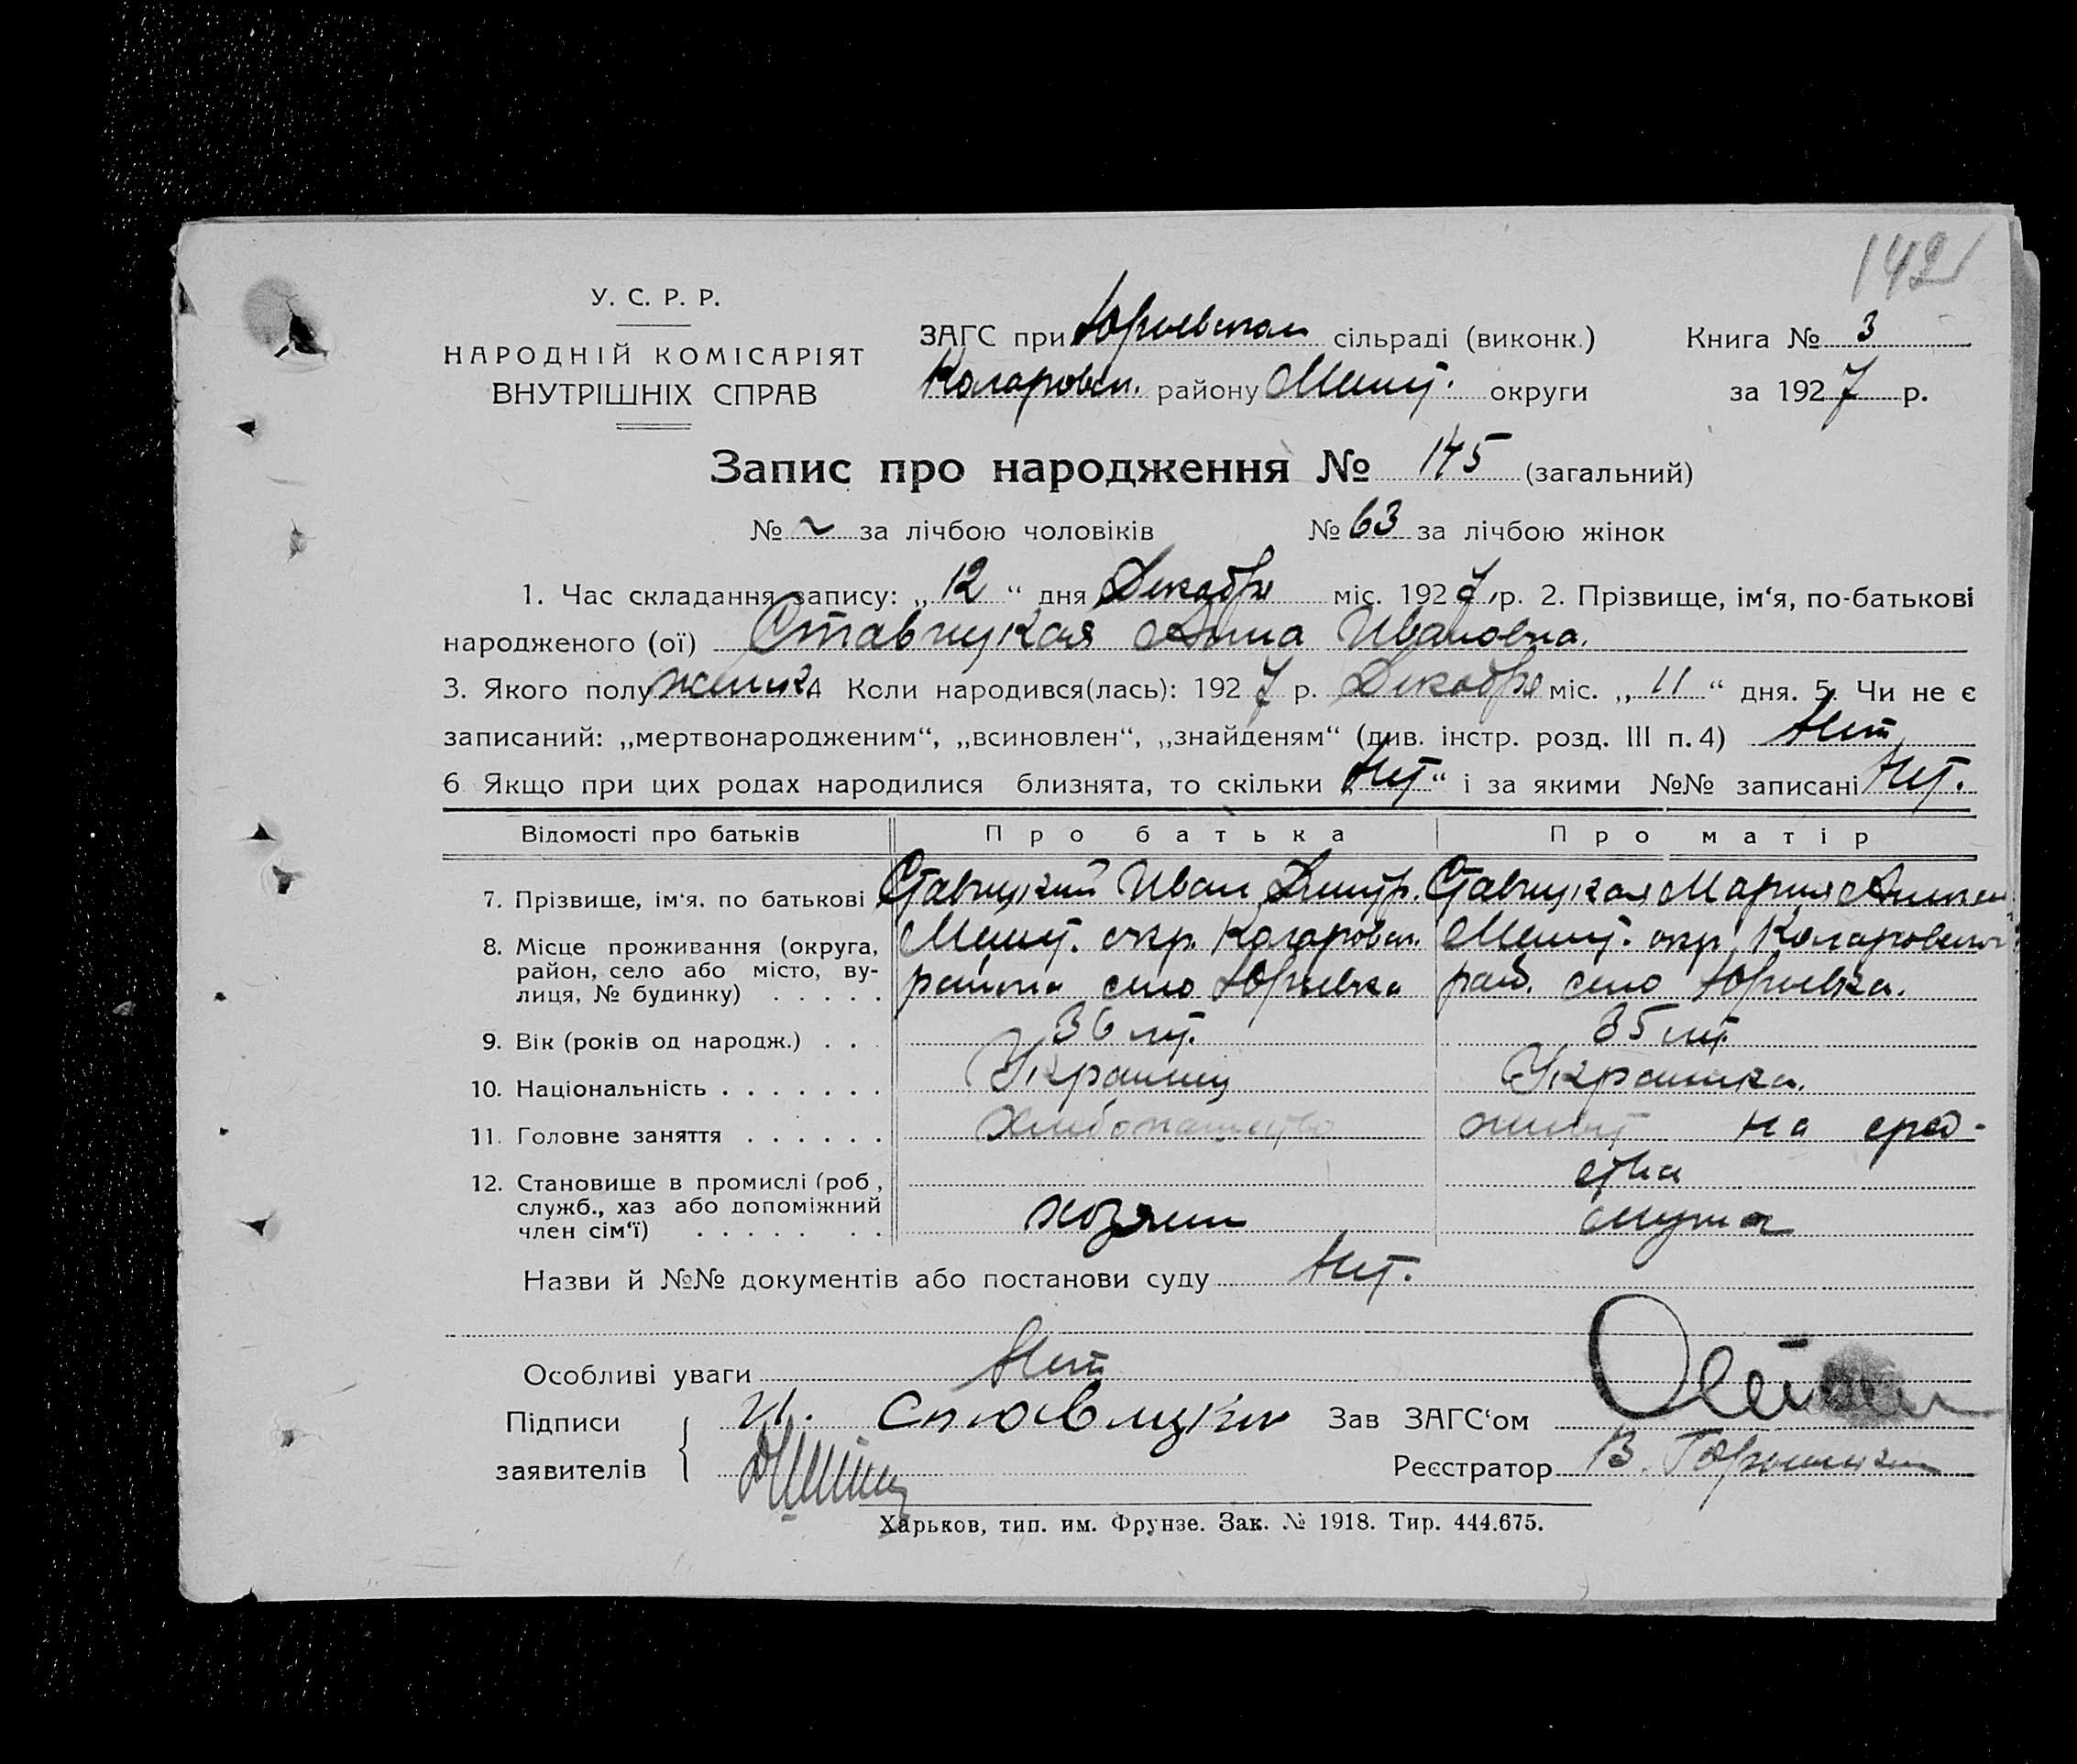 142
У. С. Р. Р.
НАРОДНІЙ КОМІСАРІЯТ
ВНУТРІШНІХ СПРАВ
ЗАГС при Юрьевском сільраді (виконк.) Книга № 3
Коларовск. району Мелит. округи за 1927 р.
Запис про народження № 145 (загальний)
№ ~ за лічбою чоловіків № 63 за лічбою жінок
1. Час складання запису: „12“ дня Декабря міс. 1927 р. 2. Прізвище, ім‘я, по-батькові
народженого (ої) Ставицкая Анна Ивановна.
3. Якого полу женск. 4 Коли народився(лась): 1927 р. Декабря міс. „11“ дня. 5. Чи не є
записаний: „мертвонародженим“, „всиновлен“, „знайденям“ (див. інстр. розд. III п. 4) Нет
6 Якщо при цих родах народилися близнята, то скільки „Нет“ і за якими №№ записані Нет.
Відомості про батьків Про батька Про матір
7. Прізвище, ім‘я. по батькові Ставицкий Иван Дмитр. Ставицкая Мария
8. Місце проживання (округа, Мелит. окр. Коларовск. Мелит. окр. Коларовского
район, село або місто, ву-
лиця, № будинку) . . . . . района село Юрьевка рай. село Юрьевка.
9. Вік (років од народж.) . . . 36 лет. 35 лет
10. Національність . . . . . . . Украинец Украинка.
11. Головне заняття . . . . . . Хлебопашество живет на сред-
12. Становище в промислі (роб, ства
служб., хаз або допоміжний
член сім‘ї) . . . . . . . хозяин мужа
Назви й №№ документів або постанови суду Нет.
Особливі уваги Нет
Підписи И. Ставицкий Зав ЗАГС‘ом
заявителів Реєстратор В.
Харьков, тип. им. Фрунзе. Зак. № 1918. Тир. 444.675.